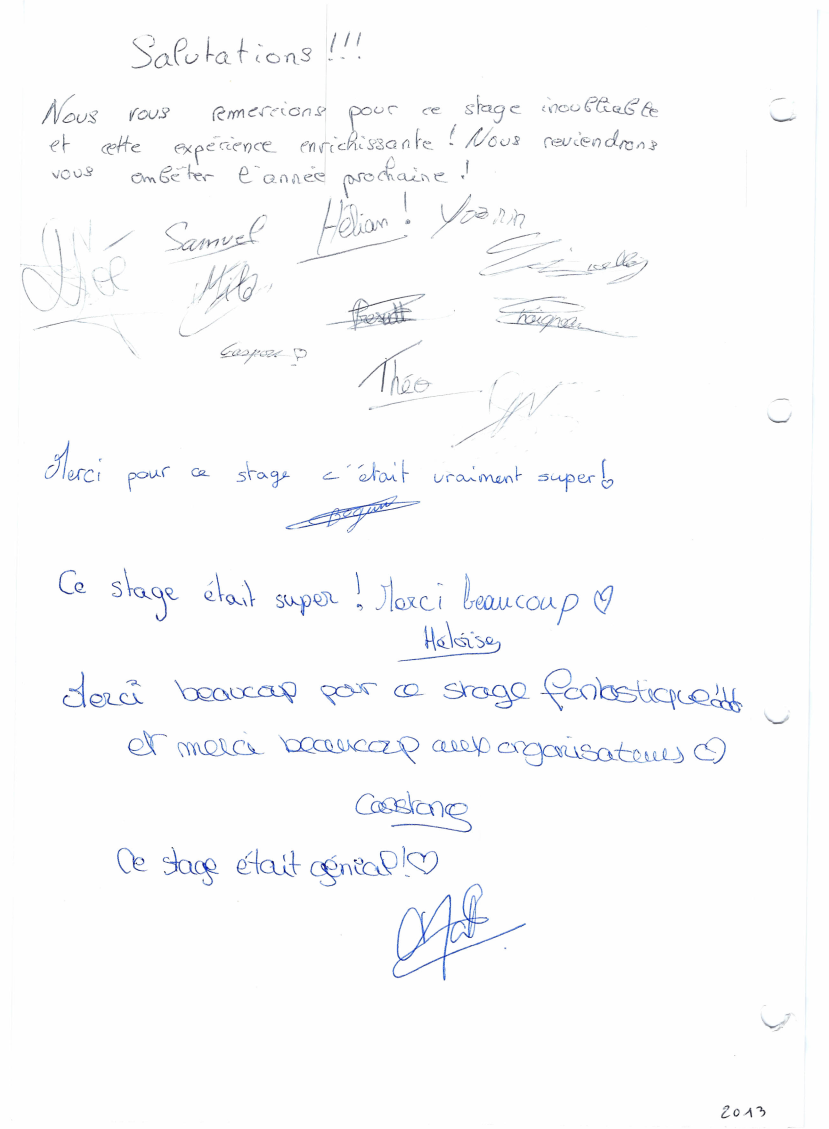 Salutations !!!
Nous vous remercions pour ce stage inoubliable
et cette expérience enrichissante ! Nous reviendrons
vous embêter l'année prochaine !
Samuel Hélian ! Yoann
Milo
Gaspar
Théo
Merci pour ce stage c'était vraiment super !
Ce stage était super ! Merci beaucoup ♡
Héloïse
Merci beaucoup pour ce stage fantastique!!!
et merci beaucoup aux organisateurs ♡
Ce stage était génial ! ♡
2013